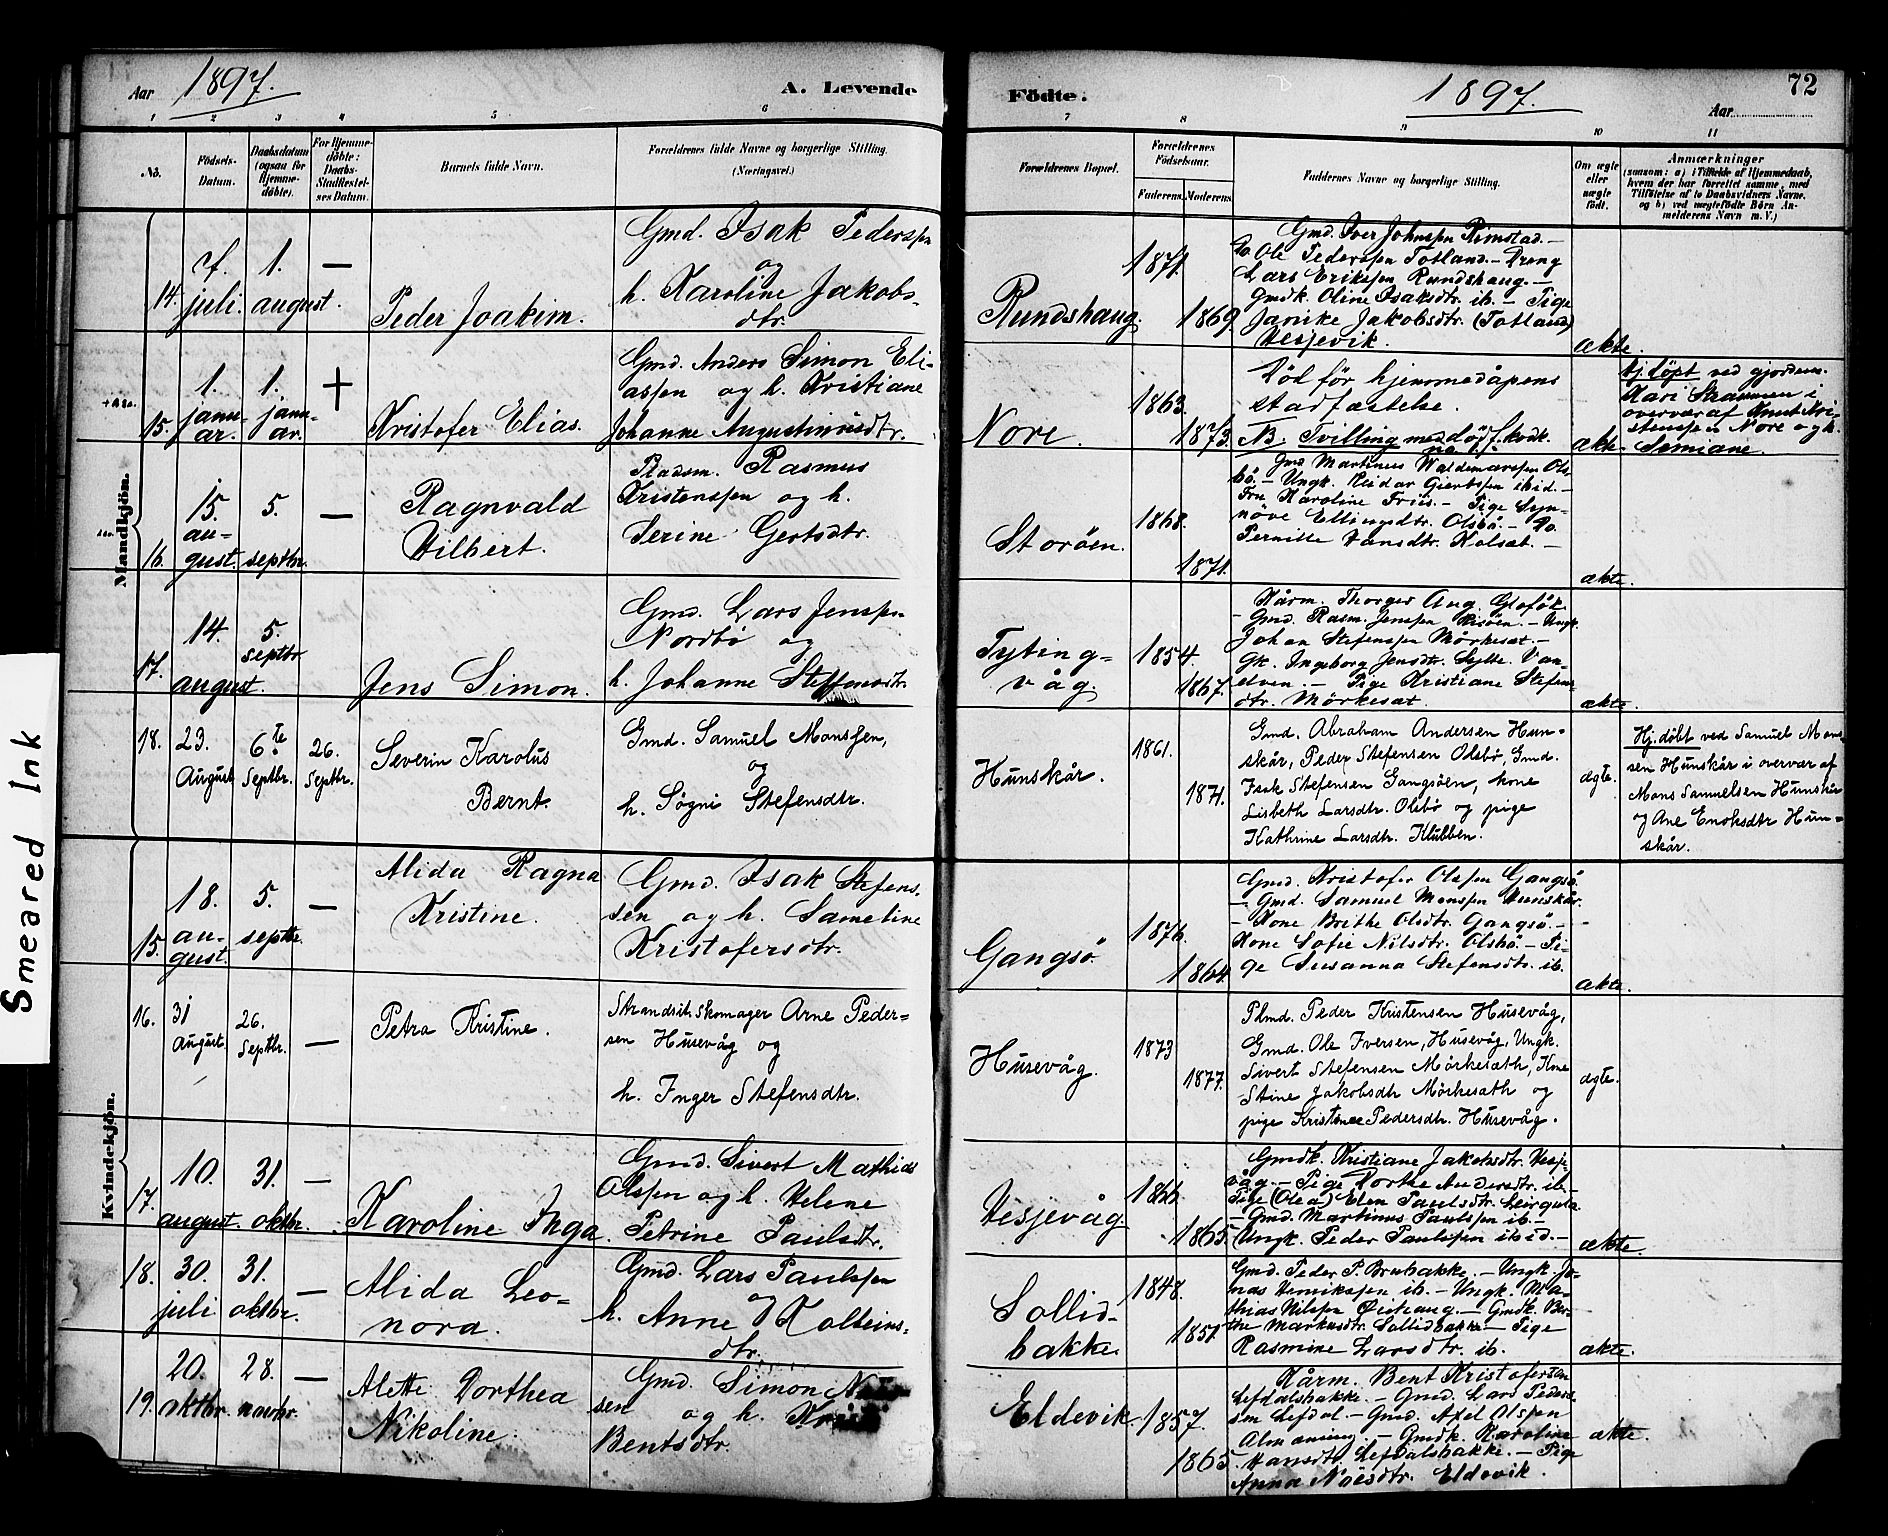 Aar 1897. A. Levende
Födte. 1897. Aar 72
1 2 3 4 5 6 7 8 9 10 11
No.
Födsels-Datum.
Daabsdatum (ogsaa for Hjemme-döbte).
For Hjemme-döbte: Daabs-Stadfæstel-ses Datum.
Barnets fulde Navn.
Forældrenes fulde Navne og borgerlige Stilling.
(Næringsvei.)
Forældrenes Bopæl.
Forældrenes Födselsaar.
Faderens. Moderens.
Faddernes Navne og borgerlige Stilling.
Om ægte eller uægte födt.
Anmærkninger
(saasom: a) i Tilfælde af Hjemmedaab,
hvem der har forrettet samme, med
Tilföielse af to Daabsvidners Navne,
og b) ved uægtefödte Börn An-
melderens Navn m. V.)
Smeared Ink
Mandkjön.
14. juli 1. august. —
Peder Joakim.
Gmd. Isak Pederssen
og
h. Karoline Jakobs-
dtr.
Rundshaug
1871.
1869
Gmd. Iver Johnssen Rimstad. —
Do Ole Pederssen Totland. — Dreng
Lars Erikssen Rundshaug. —
Gmdk. Oline Isaksdtr. ib. — Pige
Janike Jakobsdtr. (Totland)
Vesjevik.
ækte.
15. 1. janu-ar. 1. janu-ar.
Kristofer Elias.
Gmd. Anders Simon Eli-
assen og h. Kristiane
Johanne Augustinusdtr.
Nore.
1863.
1873.
Död för hjemmedåpens
stadfæstelse.
NB. Tvilling med dödf. kvk.
ækte.
hj. döpt ved gjordem.
Kari
overvær af Knut Kri-
stenssen Nore og h.
16. 15. au-gust. 5. septbr. —
Ragnvald
Vilbert.
Rasmus
Kristenssen og h.
Serine Gertsdtr.
Storöen.
1868.
1871.
Gmd Martinus Waldemarssen Ols-
bö. — Ungk. Reidar Giertssen ibid. —
Fru Karoline Friis. — Pige Syn-
növe Ellingsdtr. Olsbö. — Do
Pernille Hansdtr. Kolset. —
ækte.
17. 14. august. 5. septbr.
Jens Simon.
Gmd. Lars Jenssen
Nordbö og
h. Johanne Steffensdtr.
Tyting-
våg.
1854.
1867.
Kårm. Thorger Aug.
— Gmd. Rasm. Jenssen Risöen. — Ungk.
Johan Stefenssen Mörkesæt. —
Gk. Ingeborg Jensdtr. Sylte. Van-
elven. — Pige Kristiane Stefens-
dtr. Mörkesæt.
ækte.
18. 23. August 6te Septbr. 26. Septbr.
Severin Karolus
Bernt.
Gmd. Samuel Monssen,
og
h. Sögni Stefensdtr.
Hunskår.
1861.
1871.
Gmd. Abraham Andersen Hun-
skår, Peder Stefensen Olsbö, Gmd.
Isak Stefensen Gangsöen, kone
Lisbeth Larsdtr. Olsbö og pige
Kathrine Larsdtr. Klubben.
ægte.
Hj. döbt ved Samuel Mons-
sen Hunskår i overvær af
Mons Samuelsen Hunskår
og Ane Enoksdtr Hun-
skår.
Kvindekjön.
15. 18. au-gust. 5. septbr. —
Alida Ragna
Kristine.
Gmd. Isak Stefens-
sen og h. Sameline
Kristofersdtr.
Gangsö.
1876.
1864.
Gmd. Kristofer Olssen Gangsö.
— Gmd. Samuel Monssen Hunskår.
— Kone Brithe Olsdtr. Gangsö. —
Kone Sofie Nilsdtr. Olsbö. — Pi-
ge Susanna Stefensdtr. ib.
ækte.
16. 31 August. 26. Septbr. —
Petra Kristine.
Strandsit. Skomager Arne Peder-
sen Husevåg og
h. Inger Stefensdtr.
Husevåg.
1873
1877.
Plmd. Peder Kristensen Husevåg,
Gmd. Ole Iversen, Husevåg, Ungk.
Sivert Stefensen Mörkesæth, Kone
Stine Jakobsdtr Mörkesæth og
pige Kristence Pedersdtr. Husevåg.
ægte.
17. 10. august. 31. oktbr. —
Karoline Inga.
Gmd. Sivert Mathias
Olssen og h. Helene
Petrine Paulsdtr.
Vesjevåg
1866.
1865.
Gmdk. Kristiane Jakobsdtr. Vesje-
våg. — Pige Dorthe Andersdtr. ib. —
Pige (Olea) Elen Paulsdtr.
— Gmd. Martinus Paulssen ib. —
Ungk. Peder Paulssen ibid. —
ækte.
18. 30. juli 31. oktbr. —
Alida Leo-
nora.
Gmd. Lars Paulssen
og
h. Anne Kolbeins-
dtr.
Sollid-
bakke.
1848.
1857.
Gmd. Peder P. Brubakke. — Ungk. Jo-
nas Henrikssen ib. — Ungk. Ma-
thias Nilssen — Gmdk. Ber-
the Markusdtr. Sollidbakke — Pige
Rasmine Larsdtr. ib.
ækte.
19. 20. oktbr. 28. novbr. —
Alette Dorthea
Nikoline.
Gmd. Simon
sen og h.
Bentsdtr.
Eldevik.
1857.
1865.
Kårm. Bent Kristofersen
Lefdalsbakke. — Gmd. Lars Peders-
sen Lefdal. — Gmd. Axel Olssen
Almaning. — Gmdk. Karoline
Hansdtr. Lefdalsbakke. — Pige
Anna Nilsdtr. Eldevik.
ækte.